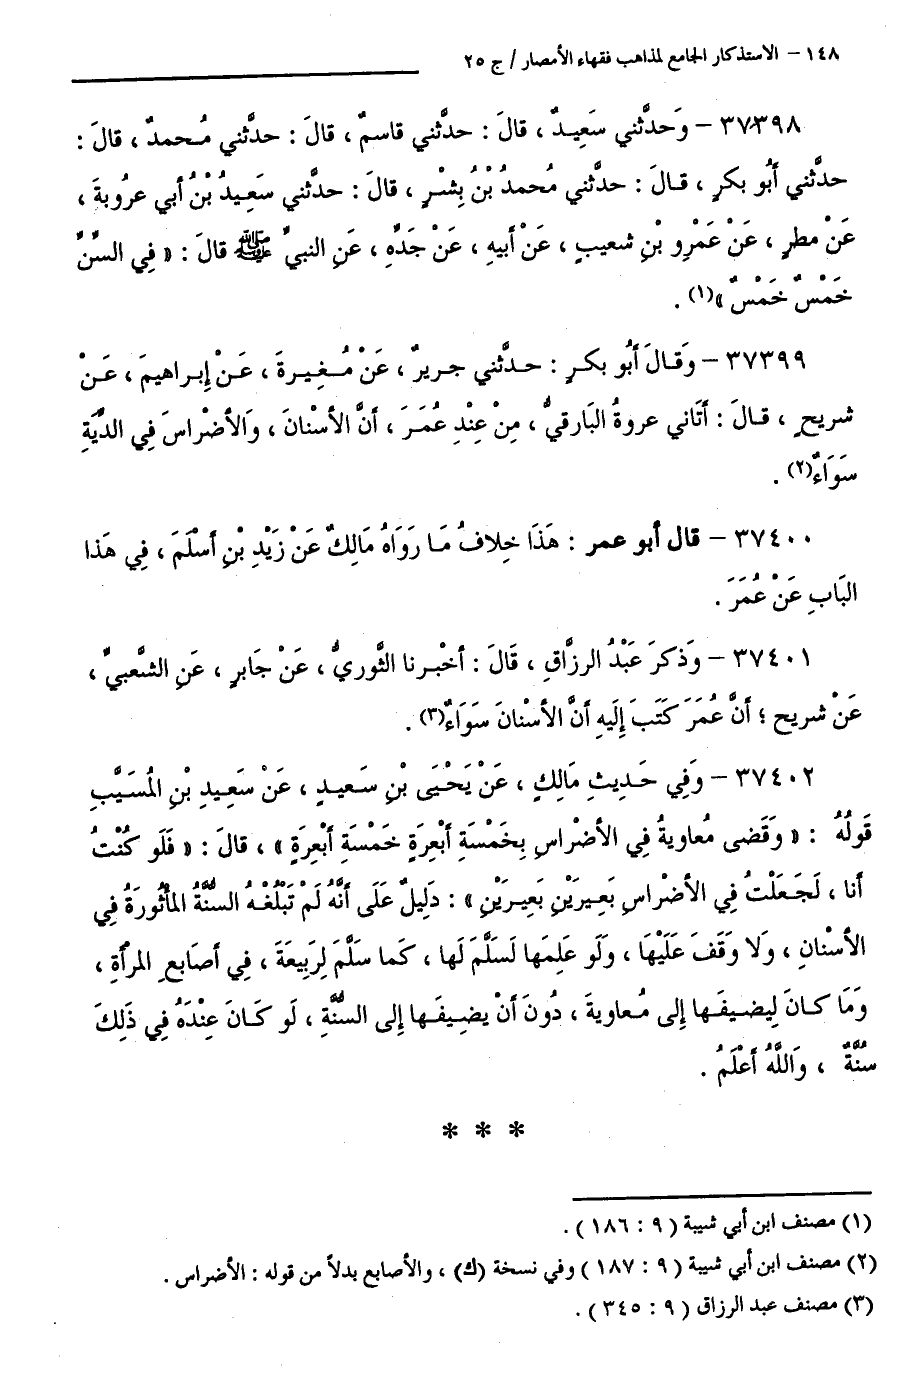 ١٤٨ – الاستذكار الجامع لمذاهب فقهاء الأمصار / ج ٢٥
٣٧٣٩٨ – وَحدثَّني سَعِيدٌ ، قالَ : حدثَّني قاسمٌ ، قالَ : حدثَّني مُحمدٌ ، قالَ :
حدثَّني أَبُو بكرٍ ، قالَ : حدثَّني مُحمدُ بْنُ بِشْرٍ ، قالَ : حدثَّني سَعِيدُ بْنُ أبي عروُبةَ ،
عَنْ مطرٍ ، عَنْ عَمْرِو بْنِ شعيبٍ ، عَنْ أبيهِ ، عَنْ جَدِّهِ ، عَنِ النبيِّ ﷺ قالَ : « فِي السِّنِّ
خَمْسٌ خَمْسٌ »(١) .
٣٧٣٩٩ – وَقالَ أَبُو بكرٍ : حدثَّني جريرٌ ، عَنْ مُغيرةَ ، عَنْ إبراهيمَ ، عَنْ
شريحٍ ، قالَ : أَتَاني عروةُ البَارقيُّ ، مِنْ عِنْدِ عُمَرَ ، أنَّ الأسْنانَ ، وَالأضْراسَ فِي الدِّيَةِ
سَوَاءٌ(٢) .
٣٧٤٠٠ – قال أبو عمر : هَذَا خِلافُ مَا رَوَاهُ مَالِكٌ عَنْ زَيْدِ بْنِ أسْلَمَ ، فِي هَذا
البَابِ عَنْ عُمَرَ .
٣٧٤٠١ – وَذكرَ عَبْدُ الرزاَّقِ ، قَالَ : أخْبرنا الثَّوريُّ ، عَنْ جَابرٍ ، عَنِ الشَّعبيِّ ،
عَنْ شريحٍ ؛ أنَّ عُمَرَ كَتَبَ إِلَيهِ أنَّ الأسْنانَ سَوَاءٌ(٣) .
٣٧٤٠٢ – وَفِي حَدِيثِ مَالِكٍ ، عَنْ يَحْيَى بْنِ سَعيدٍ ، عَنْ سَعِيدِ بْنِ الْمُسَيَّبِ
قَولُهُ : « وَقَضى مُعاويةُ فِي الأضْراسِ بِخَمْسَةِ أَبْعِرَةٍ خَمْسَةِ أَبْعِرَةٍ » ، قالَ : « فَلَو كُنْتُ
أنا ، لَجَعَلْتُ فِي الأضْراسِ بَعِيرَيْنِ بَعِيرَيْنِ » : دَلِيلٌ عَلَى أنَّهُ لَمْ تَبْلُغْهُ السنَّةُ المأْثُورَةُ فِي
الأسْنانِ ، وَلا وَقَفَ عَلَيْهَا ، وَلَو عَلِمَها لَسَلَّمَ لَها ، كَما سَلَّمَ لِرَبِيعَةَ ، فِي أصَابعِ المرأةِ ،
وَمَا كانَ لِيضيفَها إلى مُعاويةَ ، دُونَ أنْ يضِيفَها إلى السنَّةِ ، لَو كَانَ عِنْدَهُ فِي ذَلِكَ
سنَّةٌ ، وَاللَّهُ أعْلَمُ .
* * *
(١) مصنف ابن أبي شيبة ( ٩ : ١٨٦ ) .
(٢) مصنف ابن أبي شيبة ( ٩ : ١٨٧ ) وفي نسخة (ك) ، والأصابع بدلاً من قوله : الأضراس .
(٣) مصنف عبد الرزاق ( ٩ : ٣٤٥ ) .